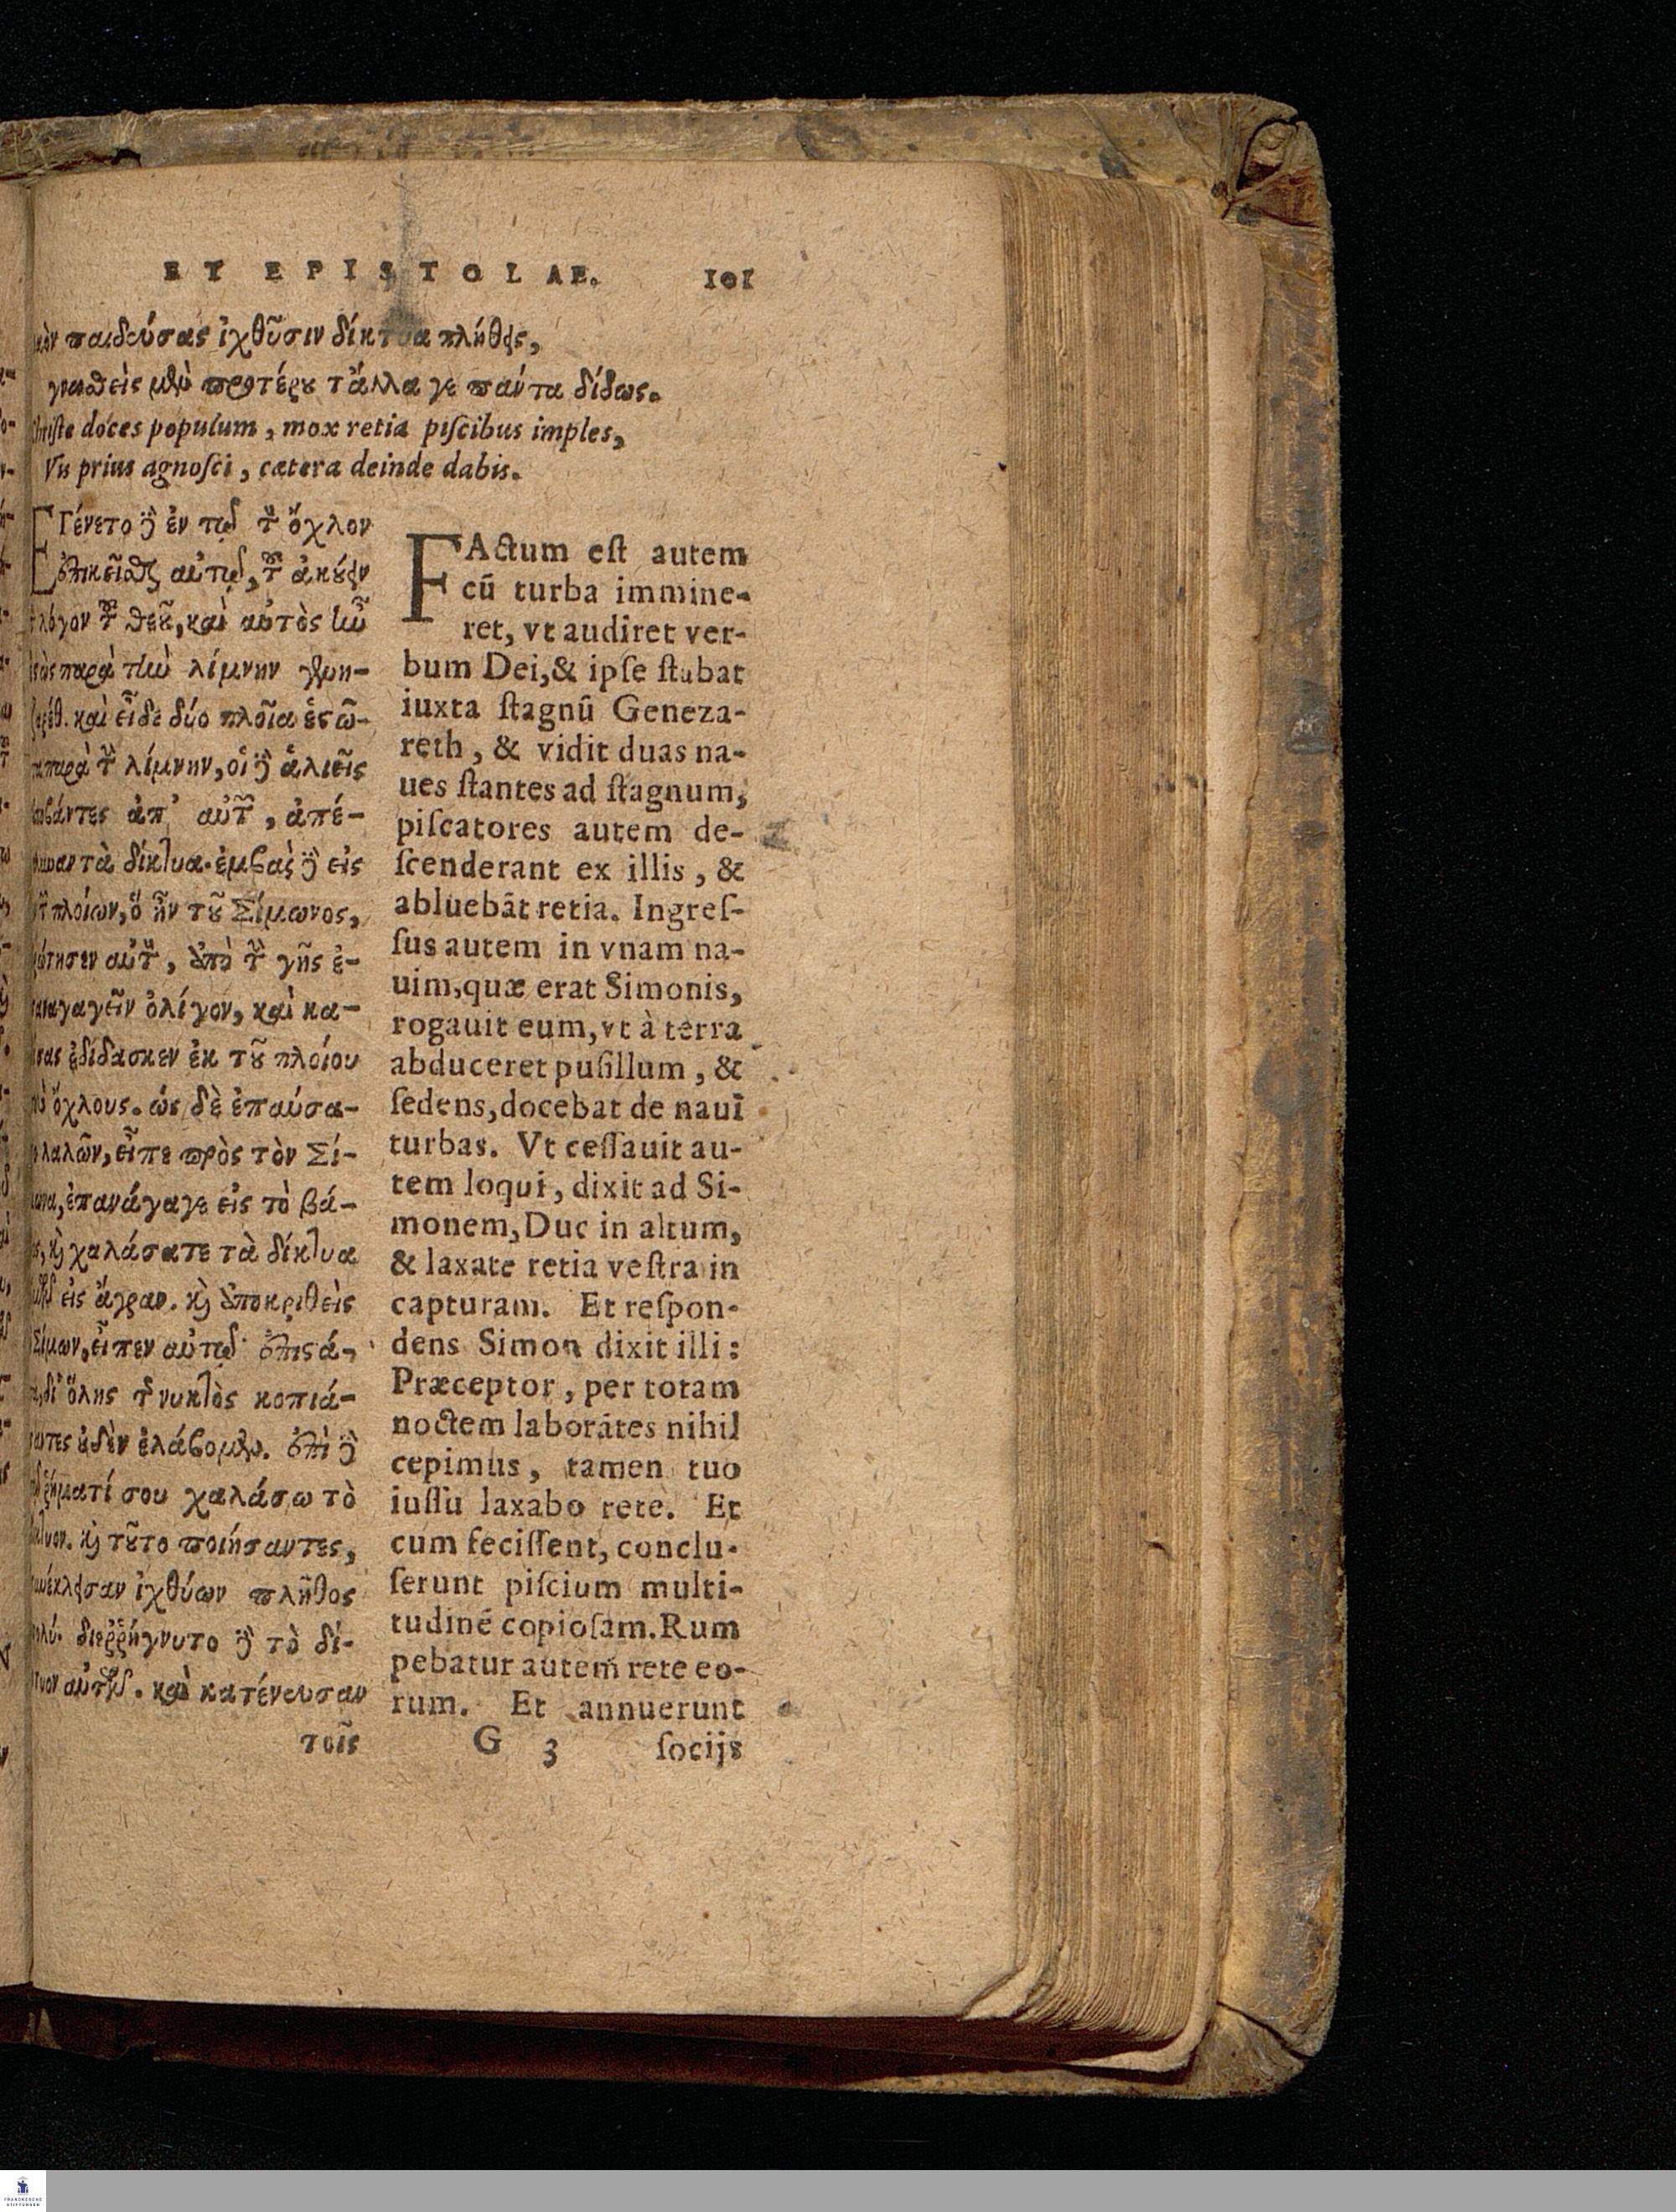 ET EPISTOLAE. 101
παιδεύσας ἰχθῦσιν δίκτυα πλήθεις,
γνωσθεὶς μὲν προτέρου τἄλλα γε πάντα δίδως.
Chriſte doces populum, mox retia piſcibus imples,
Vis prius agnoſci, cætera deinde dabis.
ΕΓένετο δὲ ἐν τῷ τὸν ὄχλον
ἐπικεῖσθαι αὐτῷ, τοῦ ἀκούειν
λόγον τοῦ θεοῦ, καὶ αὐτὸς ἦν
παρὰ τὴν λίμνην γεννη-
καὶ εἶδε δύο πλοῖα ἑστῶ-
παρὰ τὴν λίμνην, οἱ δὲ ἁλιεῖς
ἀπ' αὐτῶν, ἀπέ-
τὰ δίκτυα. ἐμβὰς δὲ εἰς
πλοίων, ὃ ἦν τοῦ Σίμωνος,
αὐτὸν, ἀπὸ τῆς γῆς ἐ-
ὀλίγον, καὶ κα-
ἐδίδασκεν ἐκ τοῦ πλοίου
ὄχλους. ὡς δὲ ἐπαύσα-
λαλῶν, εἶπε πρὸς τὸν Σί-
ἐπανάγαγε εἰς τὸ βά-
καὶ χαλάσατε τὰ δίκτυα
εἰς ἄγραν. καὶ ἀποκριθεὶς
Σίμων, εἶπεν αὐτῷ· ἐπιστά-
δι' ὅλης τῆς νυκτὸς κοπιά-
οὐδὲν ἐλάβομεν. ἐπὶ δὲ
σου χαλάσω τὸ
καὶ τοῦτο ποιήσαντες,
ἰχθύων πλῆθος
διεῤῥήγνυτο δὲ τὸ δί-
αὐτῶν. καὶ κατένευσαν
τοῖς
FActum eſt autem
cū turba immine-
ret, vt audiret ver-
bum Dei, & ipſe ſtabat
iuxta ſtagnū Geneza-
reth, & vidit duas na-
ues ſtantes ad ſtagnum,
piſcatores autem de-
ſcenderant ex illis, &
abluebāt retia. Ingreſ-
ſus autem in vnam na-
uim, quæ erat Simonis,
rogauit eum, vt à terra
abduceret puſillum, &
ſedens, docebat de naui
turbas. Vt ceſſauit au-
tem loqui, dixit ad Si-
monem, Duc in altum,
& laxate retia veſtra in
capturam. Et reſpon-
dens Simon dixit illi:
Præceptor, per totam
noctem laborātes nihil
cepimus, tamen tuo
iuſſu laxabo rete. Et
cum feciſſent, conclu-
ſerunt piſcium multi-
tudinē copioſam. Rum
pebatur autem rete eo-
rum. Et annuerunt
G 3 ſocijs
FRANCKESCHE
STIFTUNGEN